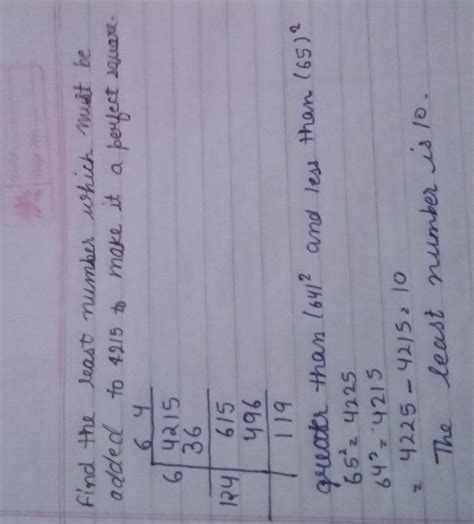 Find the least number which must be
added to 4215 to make it a perfect square.
6 4
6 4215
36
124 615
496
119
greater than (64)² and less than (65)²
65² = 4225
64² = 4215
= 4225 - 4215 = 10
The least number is 10.